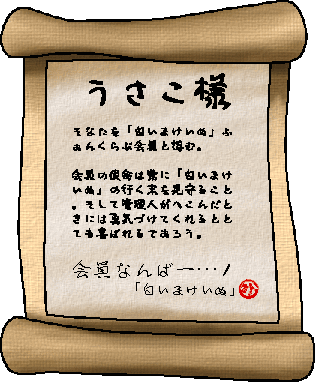 うさこ様
そなたを「白いまけいぬ」ふ
ぁんくらぶ会員と認む。
会員の使命は常に「白いまけ
いぬ」の行く末を見守ること
。そして管理人がへこんだと
きには勇気づけてくれるとと
ても喜ばれるであろう。
会員なんばー…1
「白いまけいぬ」